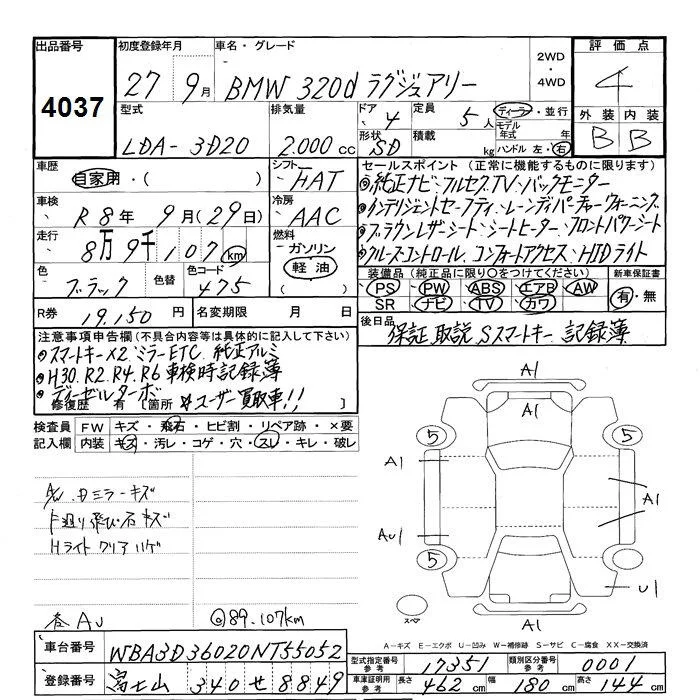 出品番号 4037
初度登録年月 27 9月
車名・グレード BMW 320d ラグジュアリー
2WD・4WD
評価点 4
外装 内装
B B
型式 LDA-3D20
排気量 2.000cc
ドア 4 形状 SD
定員 5人 積載 kg
ディーラー・並行
モデル年式 年式
ハンドル 左・右
車歴 自家用・( )
シフト HAT
車検 R8年9月(29日)
冷房 AAC
走行 8万9千107km
燃料 ガソリン 軽油
色 ブラック 色替 色コード 475
セールスポイント(正常に機能するものに限ります)
◎純正ナビ・フルセグTV・バックモニター
◎インテリジェントセーフティ・レーンディパーチャーウォーニング
◎ブラウンレザーシート・シートヒーター・フロントパワーシート
◎クルーズコントロール、コンフォートアクセス・HIDライト
装備品(純正品に限り○をつけてください) 新車保証書
PS PW ABS エアB AW 有・無
SR ナビ TV カワ
R券 19.150円 名変期限 月 日
後日品 保証、取説、Sスマートキー 記録簿
注意事項申告欄(不具合内容等は具体的に記入して下さい)
◎スマートキー×2、ミラーETC、純正アルミ
◎H30.R2.R4.R6 車検時記録簿
◎ディーゼルターボ
修復歴 有 [箇所 ☆ユーザー買取車!!]
検査員記入欄
FW キズ・飛石・ヒビ割・リペア跡・×要
内装 キズ・汚レ・コゲ・穴・スレ・キレ・破レ
Dミラーキズ
下廻り飛び石キズ
Hライトクリアハゲ
AU
◎89.107km
A1
A1
5 5
A1
A1
AU1
5 5
U1
A1
スペア
A-キズ E-エクボ U-凹み W-補修跡 S-サビ C-腐食 XX-交換済
車台番号 WBA3D36020NT55052
型式指定番号 参考 17351 類別区分番号 参考 0001
登録番号 富士山 340 せ 8849
車体証明用 参考 長さ 462cm 幅 180cm 高さ 144cm